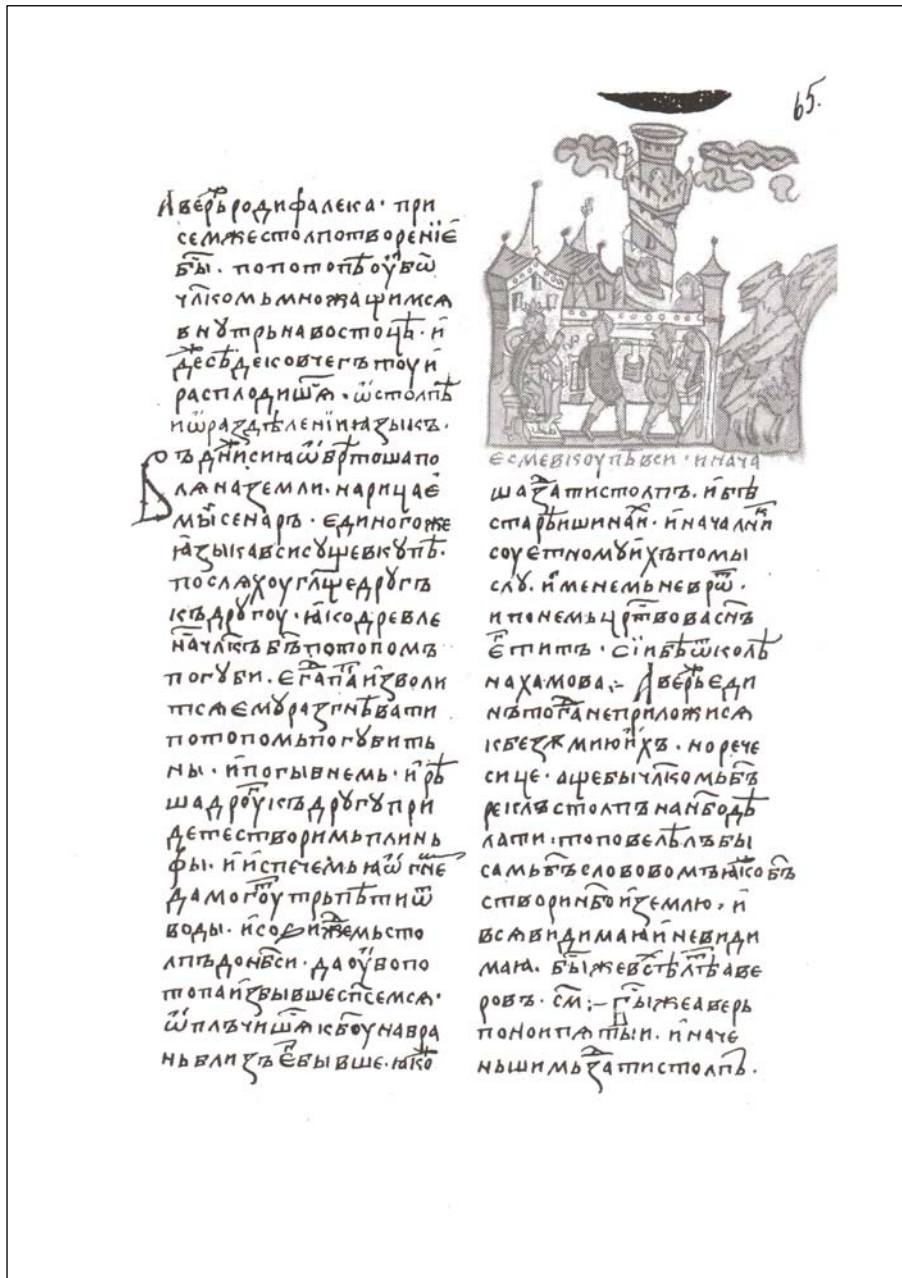 65.
Аверьжеродифалека · при
семжестолпотворенїе
бы҃ · попотопѣоу҆бѡ
чл҃комьмножащимсѧ
внꙋтрьнавостоцѣ · и
дежесѣдековчегътоуи
расплодишасѧ · ѡ҆столпѣ
иѡ҆раздѣленїиꙗзыкъ ·
Въдн҃исиꙗѡ҆брѣтошапо
лѧназемли · нарицае
мыисенаръ · единогоже
ꙗзыкавсисꙋщевкꙋпѣ ·
послѧхоугл҃щедрꙋгъ
къдрꙋгоу · ꙗкодревле
на҃чл҃къбг҃ъпотопомъ
погꙋби · егдапакиизволи
тсѧемꙋразгнѣвати
потопомьпогꙋбить
ны · ипогыбнемь · ирѣ
шадроугъкъдрꙋгꙋпри
детестворимьплинь
фы · ииспечемьꙗѡ҆гне
дамогоутрьпѣтиѿ
воды · исозиждемьсто
лпъдонбс҃и · даоубопо
топаизбывшеспс҃емсѧ ·
ѡ҆плъчишасѧкбг҃оунабра
ньблизъегѡбывше · ꙗко
есмевкоупѣвси · инача
шаздатистолпъ · ибѣ
старѣишинаим · иначалникъ
соуетномꙋихъпомы
слꙋ · именемьневрѡд ·
ипонемьцр҃твовасн҃ъ
егѡ
титъ · сїибѣѿколѣ
нахамова ;~ Аверьжееди
нътогданеприложисѧ
кбезꙋмиюихъ · норече
сице · ащебычл҃комьбг҃ъ
реклъстолпънанб҃оздѣ
лати · топовелѣлъбы
самьбг҃ъсловомъꙗкобг҃ъ
створинб҃оиземлю · и
всѧвидимаꙗиневиди
маꙗ · бы҃жевсѣхълѣтъаве
ровъ · см ;~ бы҃жеаверь
понои пѧтыи · иначе
ньшимьздатистолпъ ·